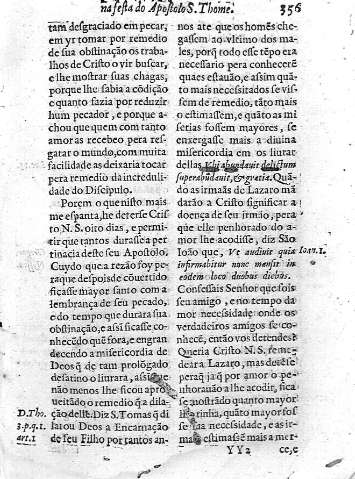 na festa do Apostolo S. Thome. 356
tam desgraciado em pecar,
em yr tomar por remedio
de sua obstinação os traba-
lhos de Cristo o vir buscar,
e lhe mostrar suas chagas,
porque lhe sabia a cõdição
e quanto fazia por reduzir
hum pecador, e porque a-
chou que quem com tanto
amor as recebeo pera res-
gatar o mundo, com muita
facilidade as deixaria tocar
pera remedio da incredul-
idade do Discipulo.
Porem o que nisto mais
me espanta, he deterse Cris-
to N. S. oito dias, e permi-
tir que tantos durasse a per-
tinacia deste seu Apostolo.
Cuydo que a rezão foy pe-
ra que despois de cõuertido
ficasse mayor santo com a
lembrança de seu pecado,
e do tempo que durara sua
obstinação, e assi ficasse co-
nhecẽdo quẽ fora, e engran
decendo a misericordia de
Deos q̃ de tam prolõgado
desatino o liurara, assi que
não menos lhe ficou apro-
ueitado o remedio q̃ a dila-
D. Tho. ção delle: Diz S. Tomas q̃ di
3. p. q. 1. latou Deos a Encarnação
art. 1 de seu Filho por tantos an-
nos ate que os homẽs che-
gassem ao vltimo dos ma-
les, porq̃ todo esse tẽpo era
necessario pera conhecerẽ
quaes estauão, e assim quã-
to mais necessitados se vis-
sem de remedio, tãto mais
o estimassem, e quãto as mi
serias fossem mayores, se
enxergasse mais a diuina
misericordia em os liurar
dellas. Vbi abundauit delictum
superabũdauit, & gratia. Quã-
do as irmaãs de Lazaro mã
darão a Cristo significar a
doença de seu irmão, pera
que elle penhorado do a-
mor lhe acodisse, diz São
Ioão que, Vt audiuit quia Ioan. 1.
infirmabitur nunc mansit in
eodem loco duobus diebus.
Confessais Senhor que sois
seu amigo, e no tempo da
mor necessidade onde os
verdadeiros amigos se co-
nhecẽ, então vos detendes?
Queria Cristo N. S. reme-
dear a Lazaro, mas detẽse
peraq̃ ja q̃ por amor o pe-
nhorauão a lhe acodir, fica
se mostrado quanto mayor
lho tinha, quãto mayor fos
se sua necessidade, e as ir-
mãs estimassẽ mais a mer-
YY2 ce, e